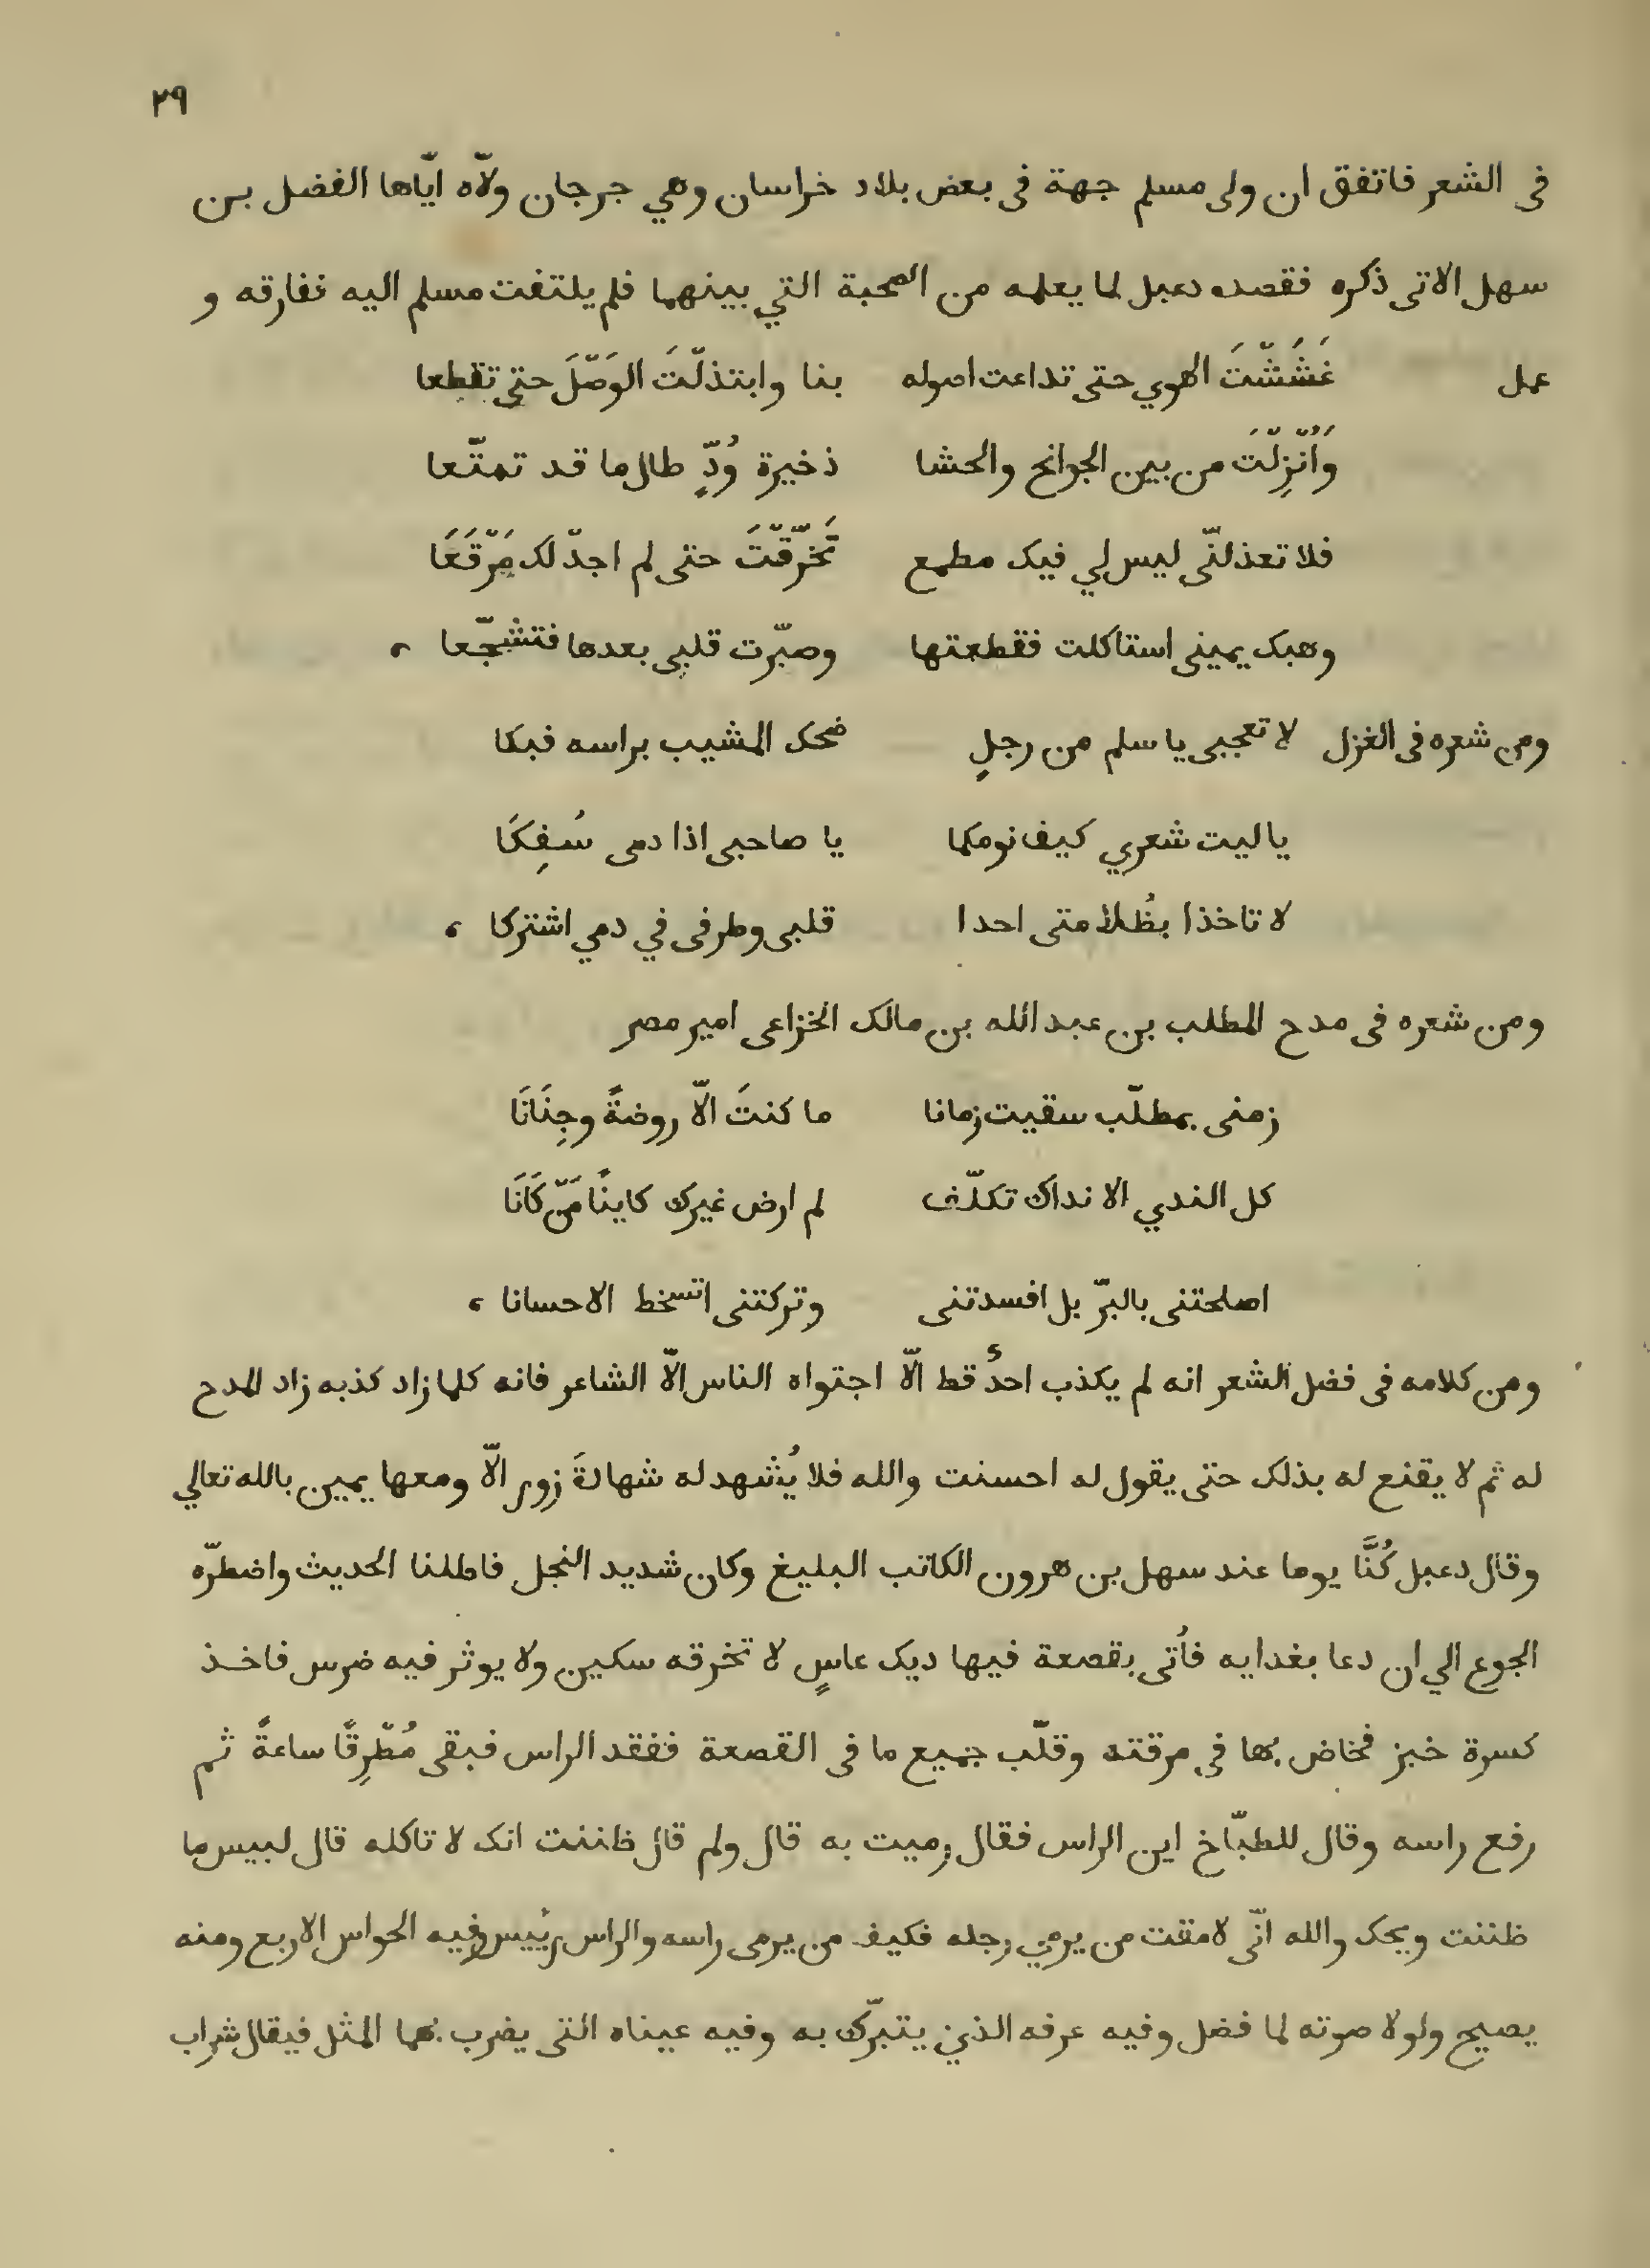 ٢٩
فى الشعر فاتفق ان ولى مسلم جهة فى بعض بلاد خراسان وهي جرجان ولّاه ايّاها الفضل بن
سهل الاتى ذكره فقصده دعبل لما يعلمه من الصحبة التي بينهما فلم يلتفت مسلم اليه ففارقه و
عمل غَشَشْتَ الهوي حتى تداعت اصوله بنا وابتذلْتَ الوَصْلَ حتى تقطعا
وَاُنْزِلْتَ من بين الجوانح والحشا ذخيرة وُدٍّ طال ما قد تمتّعا
فلا تعذلنّى ليس لي فيك مطمع تَخَرَّقْتَ حتى لم اجدْ لك مَرْقَعَا
وهبك يمينى استاكلت فقطعتها وصبّرت قلبى بعدها فتشجّعا ،
ومن شعره فى الغزل لا تعجبى يا سلم من رجلٍ ضحك المشيب براسه فبكا
يا ليت شعري كيف نومكما يا صاحبى اذا دمى سُفِكَا
لا تاخذا بظُلامتى احدا قلبى وطرفى في دمي اشتركا ،
ومن شعره فى مدح المطلب بن عبد الله بن مالك الخزاعى امير مصر
زمنى بمطلّب سقيت زمانا ما كنتَ الّا روضةً وجِنَانَا
كل الندي الا نداك تكلّف لم ارض غيرك كاينًا مَنْ كَانَا
اصلحتنى بالبرّ بل افسدتنى وتركتنى اتسخط الاحسانا ،
ومن كلامه فى فضل الشعر انه لم يكذب احدٌ قط الّا اجتواه الناس الّا الشاعر فانه كلما زاد كذبه زاد المدح
له ثم لا يقنع له بذلك حتى يقول له احسنت والله فلا يُشهد له شهادةَ زور الّا ومعها يمين بالله تعالي
وقال دعبل كُنَّا يوما عند سهل بن هرون الكاتب البليغ وكان شديد النجل فاطلنا الحديث واضطرّه
الجوع الي ان دعا بغدايه فاُتى بقصعة فيها ديك عاسٍ لا تخرقه سكين ولا يوثر فيه ضرس فاخذ
كسرة خبز فخاض بها في مرقته وقلّب جميع ما فى القصعة ففقد الراس فبقى مُطْرِقًا ساعةً ثم
رفع راسه وقال للطبّاخ اين الراس فقال رميت به قال ولم قال ظننت انك لا تاكله قال لبيس ما
ظننت ويحك والله انّى لامقت من يرمي رجله فكيف من يرمى راسه والراس رئيس وفيه الحواس الاربع ومنه
يصيح ولولا صوته لما فضل وفيه عرفه الذي يتبرّك به وفيه عيناه التى يضرب بهما المثل فيقال شراب